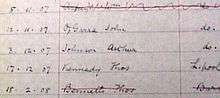 5. 11. 07
12. 11. 07 O'Meara John do.
2. 12. 07 Johnson Arthur do.
17. 12. 07 Kennedy Thos L'pool
18. 2. 08 Bennett Thos